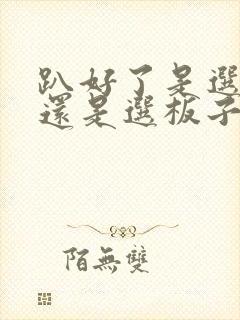 趴好了是選
還是選板子
陌無雙